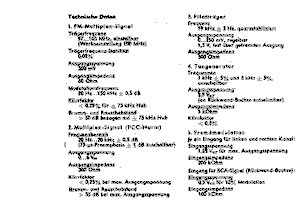 Technische Daten
1. FM-Multiplex-Signal
Trägerfrequenz
97...103 MHz, einstellbar
(Werkseinstellung 100 MHz)
Trägerfrequenz-Stabilität
0,01%
Ausgangsspannung
Ausgangsimpedanz
60 Ohm
Modulationsfrequenz
20 Hz...150 kHz ± 0,5 dB
Klirrfaktor
< 0,25% für ± 75 kHz Hub
Brumm- und Rauschabstand
> 50 dB bezogen auf ± 75 kHz Hub
2. Multiplex-Signal (FCC-Norm)
Frequenzbereich
20 Hz...20 kHz ± 0,5 dB
Ausgangsspannung
Ausgangsimpedanz
300 Ohm
Klirrfaktor
< 0,25% bei max. Ausgangsspannung
Brumm- und Rauschabstand
> 55 dB bei max. Ausgangsspannung
3. Pilotträger
Frequenz
19 kHz ± 2 Hz, quarzstabilisiert
Ausgangsspannung
regelbar
Ausgangsimpedanz
300 Ohm
4. Tongenerator
Frequenz
1 kHz ± 5% und 5 kHz ± 5%,
einstellbar
Ausgangsspannung
(an Rückwand-Buchse entnehmbar)
Ausgangsimpedanz
5 kOhm
Klirrfaktor
< 0,5%
5. Fremdmodulation
je ein Eingang für linken und rechten Kanal
Eingangsspannung
für max. Ausgangsspannung
Eingangsimpedanz
200 kOhm
Eingang für SCA-Signal (Rückwand-Buchse)
Eingangsspannung
für 10% Modulation
Eingangsimpedanz
100 kOhm